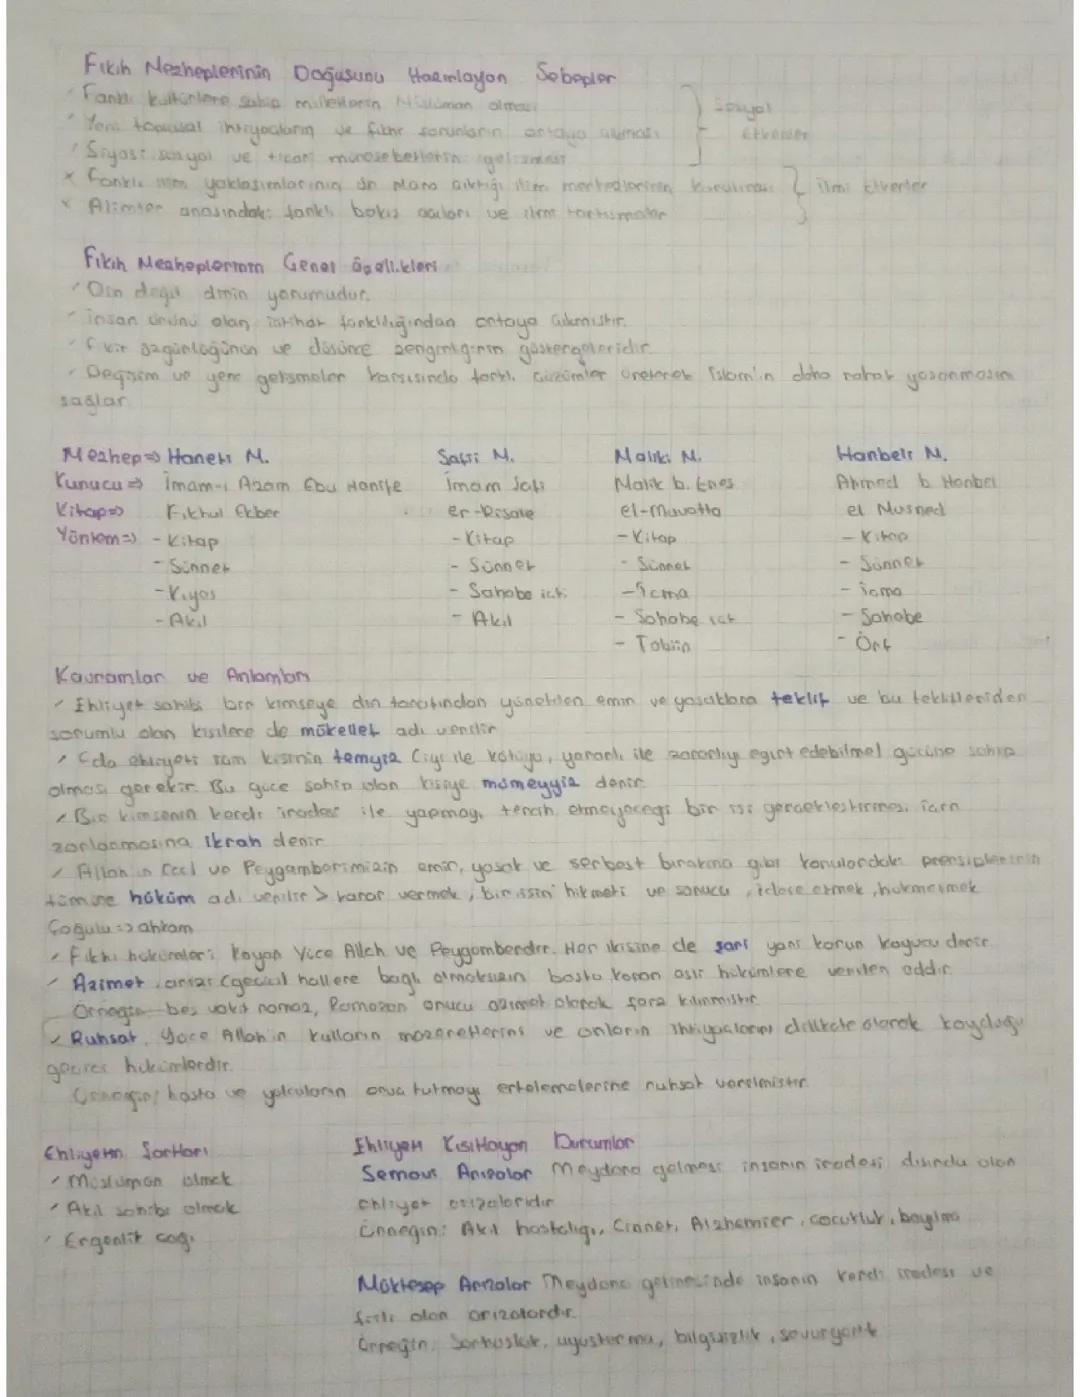 Fıkıh Mezheplerinin Doğuşunu Hazırlayan Sebepler
Farklı kültürlere sahip milletlerin Müslüman olması
Yeni toplumsal ihtiyaçların ve fıkhi sorunların ortaya çıkması
Sosyal Etkenler
Siyasi sosyal ve ticari münasebetlerin gelişmesi
x Farklı ilim yaklaşımlarının ön plana çıktığı ilim merkezlerinin kurulması
x Alimler arasındaki farklı bakış açıları ve ilmi tartışmalar
ilmi Etkenler
Fıkıh Mezheplerinin Genel Özellikleri
Din değil dinin yorumudur.
insan ürünü olan içtihat farklılığından ortaya çıkmıştır.
Fikir özgürlüğünün ve düşünce zenginliğinin göstergeleridir.
Değişim ve yeni gelişmeler karşısında farklı çözümler üreterek İslam'ın daha rahat yaşanmasını
sağlar
Mezhep => Hanefi M. Şafii M. Maliki M. Hanbeli M.
Kurucu => İmam-ı Azam Ebu Hanife İmam Şafi Malik b. Enes Ahmed b Hanbel
Kitap => Fıkhul Ekber er-Risale el-Muvatta el Musned
Yöntem => - Kitap - Kitap - Kitap - Kitap
- Sünnet - Sünnet - Sünnet - Sünnet
- Kıyas - Sahabe ict. - İcma - İcma
- Akıl - Akıl - Sahabe ict - Sahabe
- Tabiin - Örf
Kavramlar ve Anlamları
Ehliyet sahibi bir kimseye din tarafından yöneltilen emir ve yasaklara teklif ve bu tekliflerden
sorumlu olan kişilere de mükellef adı verilir
Eda ehliyeti için kişinin temyiz (iyi ile kötüyü, yararlı ile zararlıyı ayırt edebilme) gücüne sahip
olması gerekir. Bu güce sahip olan kişiye mümeyyiz denir.
Bir kimsenin kendi iradesi ile yapmayı tercih etmeyeceği bir işi gerçekleştirmesi için
zorlanmasına ikrah denir
Allah'ın Ccel ve Peygamberimizin emir, yasak ve serbest bırakma gibi konulardaki prensiplerinin
tümüne hüküm adı verilir > karar vermek, bir işin hikmeti ve sonucu, idare etmek, hükmetmek
Çoğulu => ahkam
Fıkhi hükümleri koyan Yüce Allah ve Peygamberdir. Her ikisine de şari yani kanun koyucu denir.
Azimet, arızi (geçici) hallere bağlı olmaksızın başta konan asli hükümlere verilen addır
Örneğin beş vakit namaz, Ramazan orucu azimet olarak farz kılınmıştır
Ruhsat, Yüce Allah'ın kulların mazeretlerini ve onların ihtiyaçlarını dikkate alarak koyduğu
geçici hükümlerdir.
Örneğin; hasta ve yolcuların oruç tutmayı ertelemelerine ruhsat verilmiştir.
Ehliyetin Şartları
Müslüman olmak
Akıl sahibi olmak
Ergenlik çağı
Ehliyeti Kısıtlayan Durumlar
Semavi Arızalar Meydana gelmesi insanın iradesi dışında olan
ehliyet arızalarıdır
Örneğin: Akıl hastalığı, Cinnet, Alzhemier, çocukluk, bayılma
Müktesep Arızalar Meydana gelmesinde insanın kendi iradesi ve
fiili olan arızalardır.
Örneğin: Sarhoşluk, uyuşturma, bilgisizlik, savurganlık